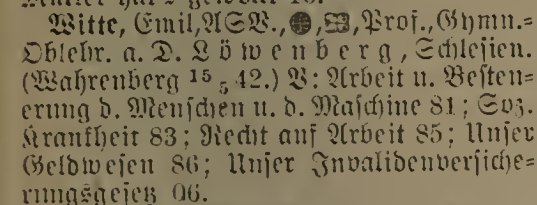 Witte, Emil, ASV., Prof., Gymn.=
Oblehr. a. D. Löwenberg, Schlesien.
(Wahrenberg 15/5 42.) V: Arbeit u. Besten=
erung d. Menschen u. d. Maschine 81; Soz.
Krankheit 83; Recht auf Arbeit 85; Unser
Geldwesen 86; Unser Invalidenversiche=
rungsgesetz 06.